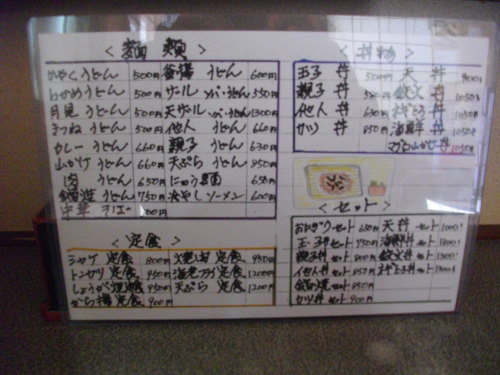 < 麺類 >
かやくうどん 500円 釜揚うどん 600円
わかめうどん 500円 ザールそば・うどん 550円
月見うどん 500円 天ザールそば・うどん 1300円
きつねうどん 500円 他人うどん 660円
カレーうどん 660円 親子うどん 630円
山かけうどん 660円 天ぷらうどん 850円
肉うどん 650円 にゅう麺 650円
鍋焼うどん 750円 冷やしソーメン 600円
中華そば 円
< 丼物 >
玉子丼 500円 天丼 900円
親子丼 580円 鉄火丼 1050円
他人丼 630円 ネギとろ丼 1050円
カツ丼 850円 海鮮丼 1050円
マグロ山かけ丼 1050円
< 定食 >
シャケ定食 800円 焼肉定食 950円
トンカツ定食 950円 海老フライ定食 1200円
しょうが焼定食 950円 天ぷら定食 1200円
から揚定食 900円
< セット >
おにぎりセット 650円 天丼セット
玉子丼セット 海鮮丼セット 1300円
親子丼セット 800円 鉄火丼セット 1300円
他人丼セット 850円 ネギとろ丼セット 1300円
鍋焼セット 850円
カツ丼セット 950円